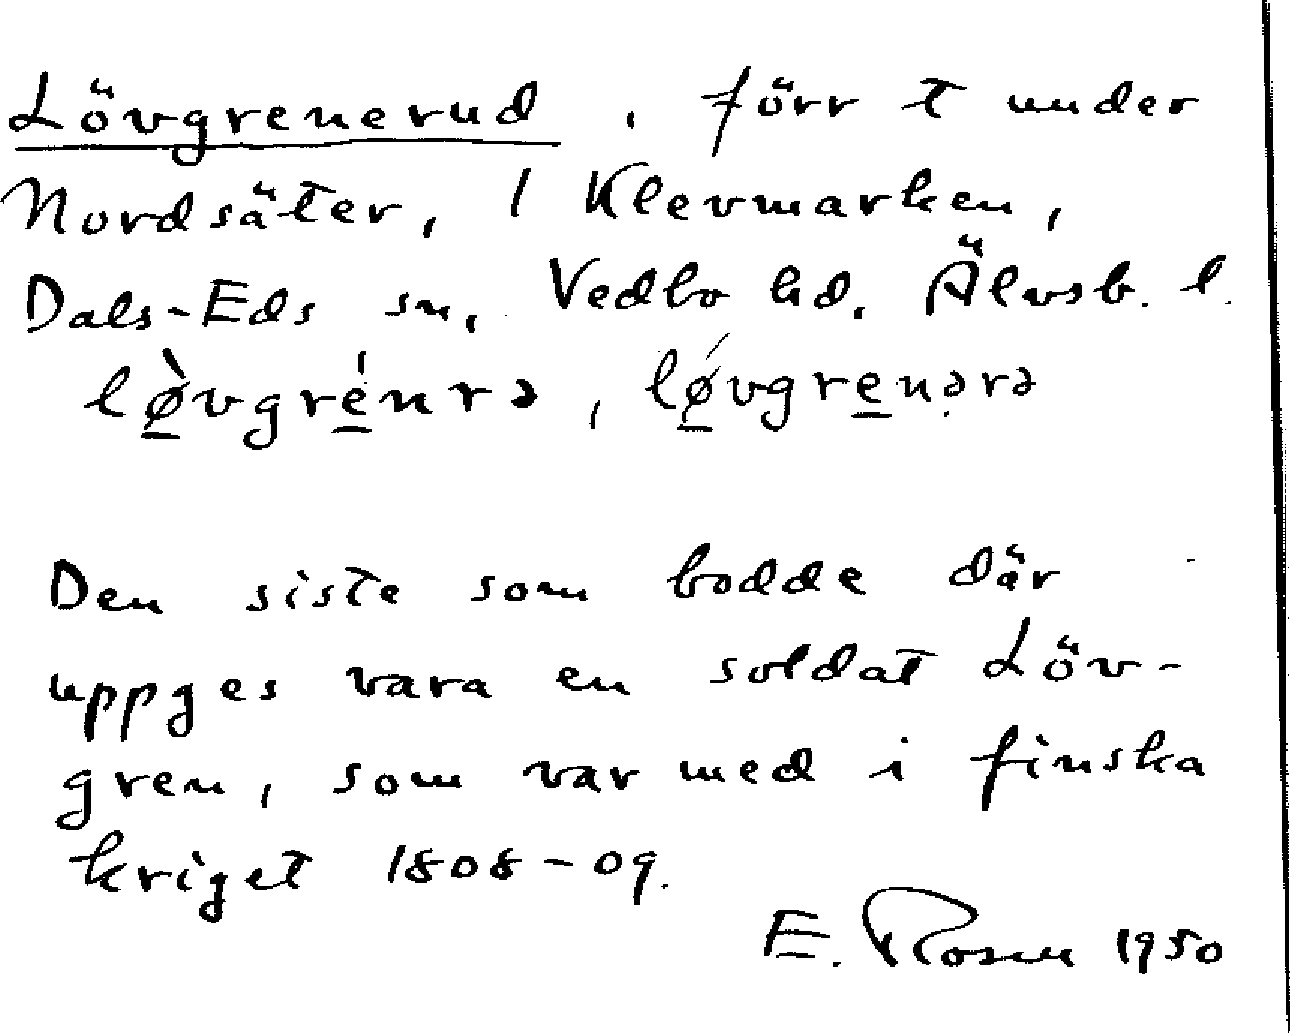 Lövgrenerud, förr t under
Nordsäter, 1 Klevmarken,
Dals-Eds sn, Vedbo hd. Älvsb. l.
lø̲̀vgré̲nrə, lǿ̲vgre̲nərə
Den siste som bodde där
uppges vara en soldat Löv-
gren, som var med i finska
kriget 1808-09.
E. Rosen 1950